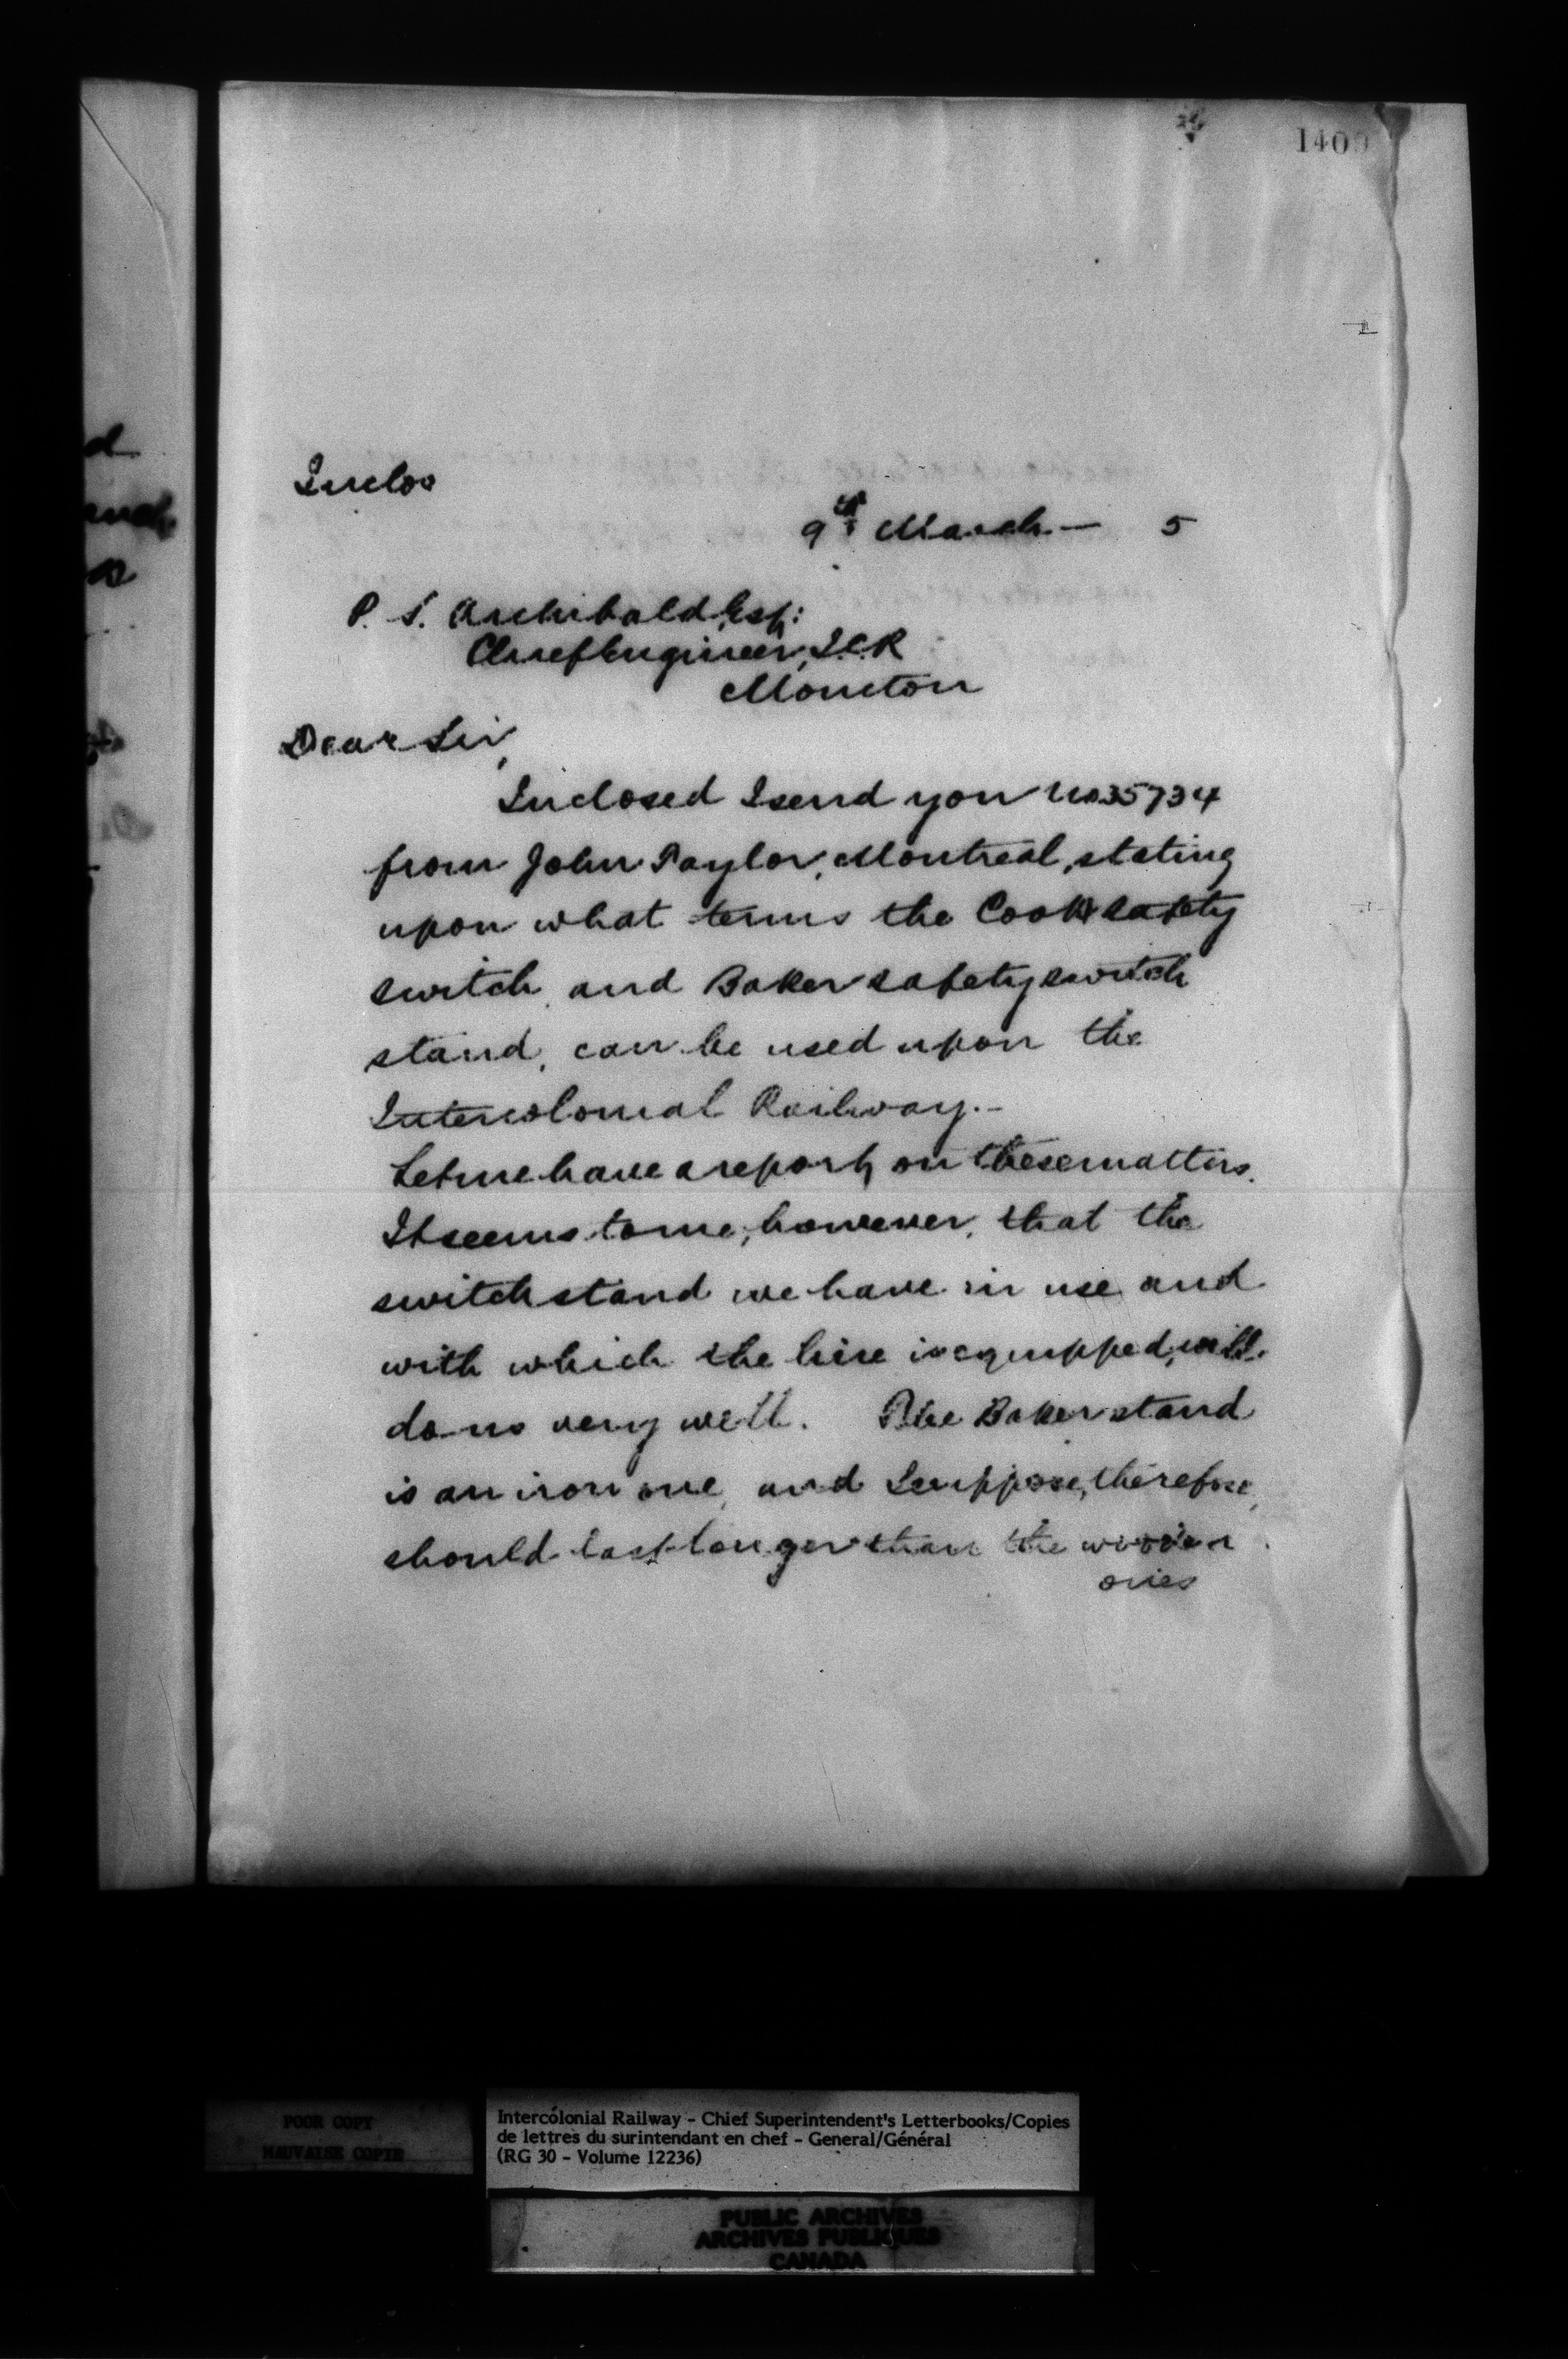 1400
Inclos
9th March — 5
P. S. Archibald, Esq:
Chief Engineer, I.C.R
Moncton
Dear Sir,
Inclosed I send you No 35734
from John Taylor, Montreal, stating
upon what terms the Cook safety
switch, and Baker safety switch
stand, can be used upon the
Intercolonial Railway.-
Let me have a report on these matters.
It seems to me, however, that the
switch stand we have in use and
with which the line is equipped, will
do us very well. The Baker stand
is an iron one, and I suppose, therefore,
should last longer than the wooden
ones
d
and
POOR COPY
MAUVAISE COPIE
Intercolonial Railway - Chief Superintendent's Letterbooks/Copies
de lettres du surintendant en chef - General/Général
(RG 30 - Volume 12236)
PUBLIC ARCHIVES
ARCHIVES PUBLIQUES
CANADA